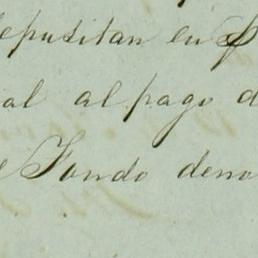 depusitan en p
ial al pago d
e Fondo deno